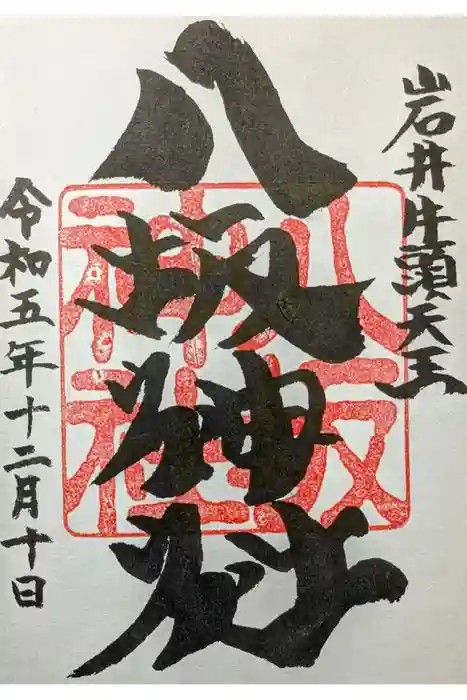 山石井牛頭天王
八坂神社
八坂
神社
令和五年十二月十日